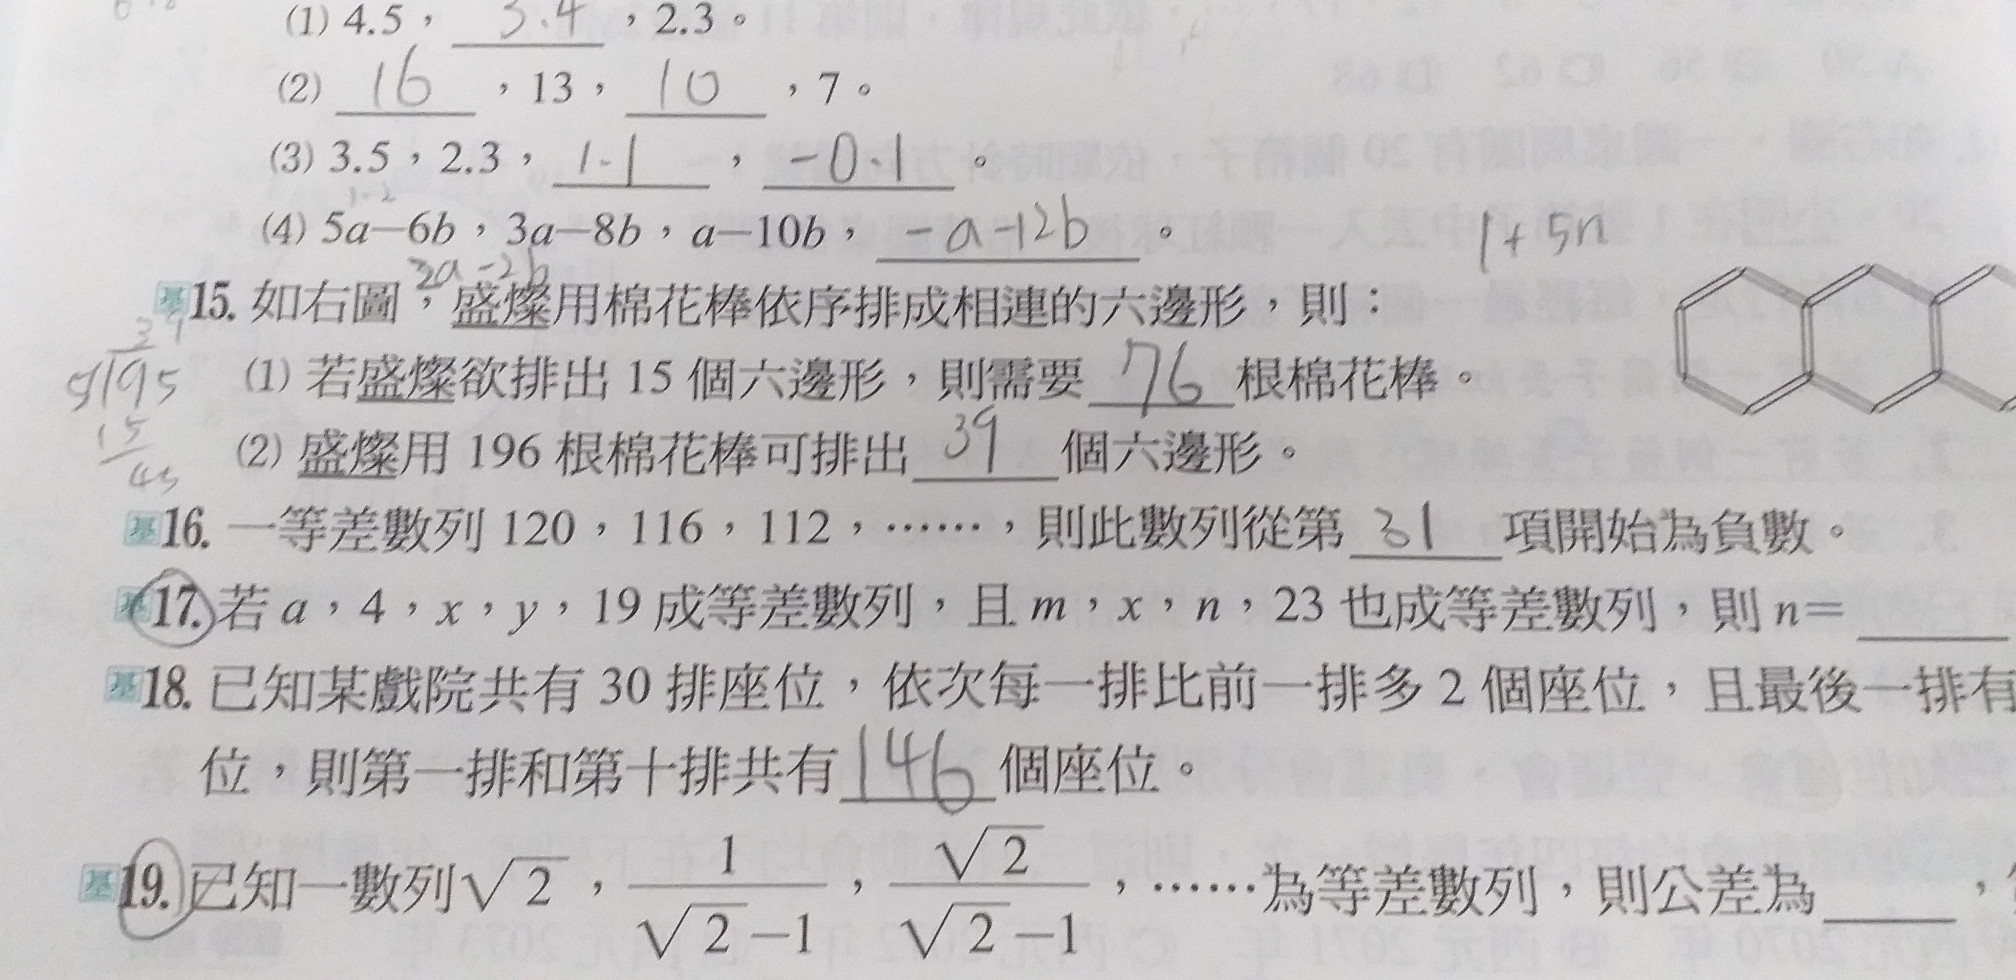 (1) 4.5，3.4，2.3。
(2) 16，13，10，7。
(3) 3.5，2.3，1.1，-0.1。
1.2
(4) 5a－6b，3a－8b，a－10b，-a-12b。
1+5n
2a-2b
基15. 如右圖，盛燦用棉花棒依序排成相連的六邊形，則：
39
5195
15
45
(1) 若盛燦欲排出 15 個六邊形，則需要 76 根棉花棒。
(2) 盛燦用 196 根棉花棒可排出 39 個六邊形。
基16. 一等差數列 120，116，112，……，則此數列從第 31 項開始為負數。
基17. 若 a，4，x，y，19 成等差數列，且 m，x，n，23 也成等差數列，則 n=
基18. 已知某戲院共有 30 排座位，依次每一排比前一排多 2 個座位，且最後一排有
位，則第一排和第十排共有 146 個座位。
基19. 已知一數列√2，1/(√2－1)，√2/(√2－1)，……為等差數列，則公差為＿＿，